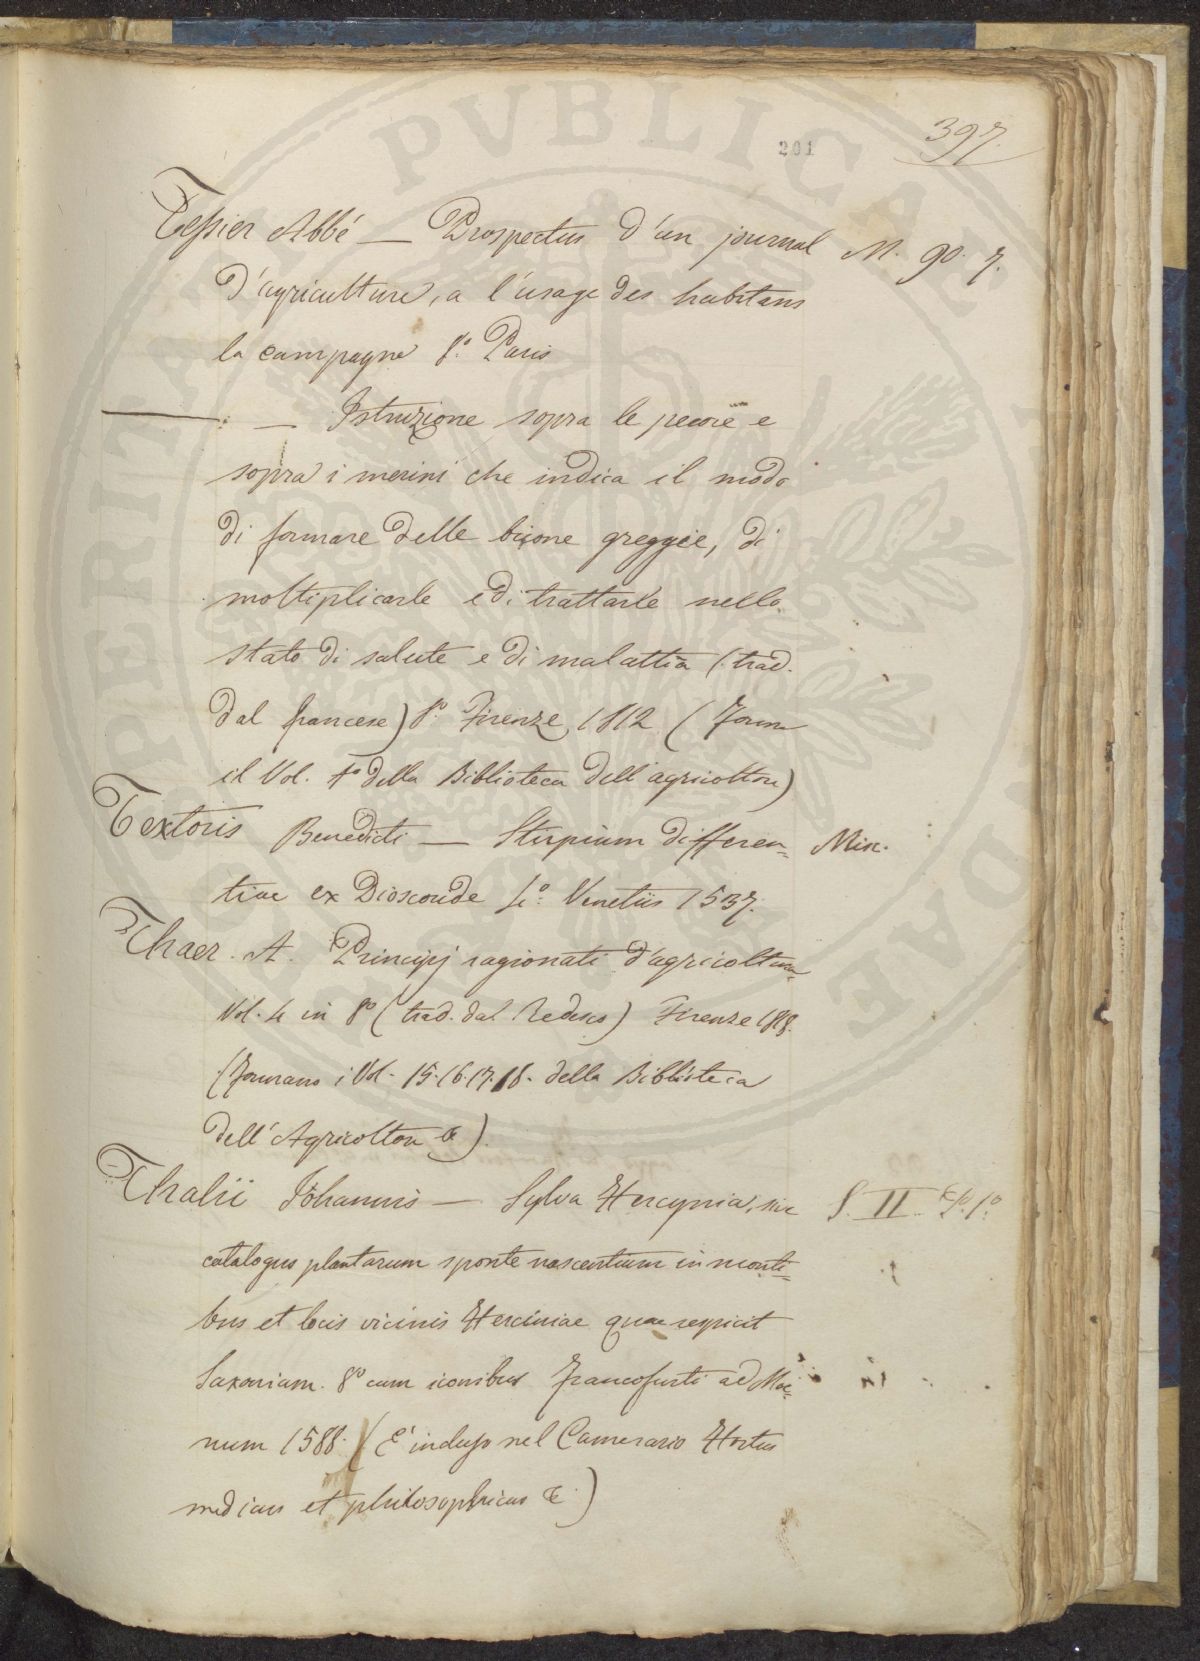 397.
201
Tessier Abbé — Prospectus d'un journal M. 90. 7.
d'agriculture, a l'usage des habitans
la campagne 8.° Paris
— Istruzione sopra le pecore e
sopra i merini che indica il modo
di formare delle buone greggie, di
moltiplicarle e di trattarle nello
stato di salute e di malattia (trad.
dal francese) 8.° Firenze 1812 (Forma
il Vol. 4° della Biblioteca dell'agricoltore)
Textoris Benedicti — Stirpium differen= Misc.
tiae ex Dioscoride 4.° Venetiis 1537.
Thaer. A. Principj ragionati d'agricoltura
Vol. 4 in 8° (trad. dal Tedesco) Firenze 1818.
(Formano i Vol. 15.16.17.18. della Biblioteca
dell'Agricoltore &)
Thalii Johannis — Sylva Hercynia, sive S. II.
catalogus plantarum sponte nascentium in monti=
bus et locis vicinis Herciniae quae respicit
Saxoniam. 8° cum iconibus Francofurti ad Moe=
num 1588. (E' incluso nel Camerario Hortus
medicus et philosophicus &.)
PERITATI PVBLICAE